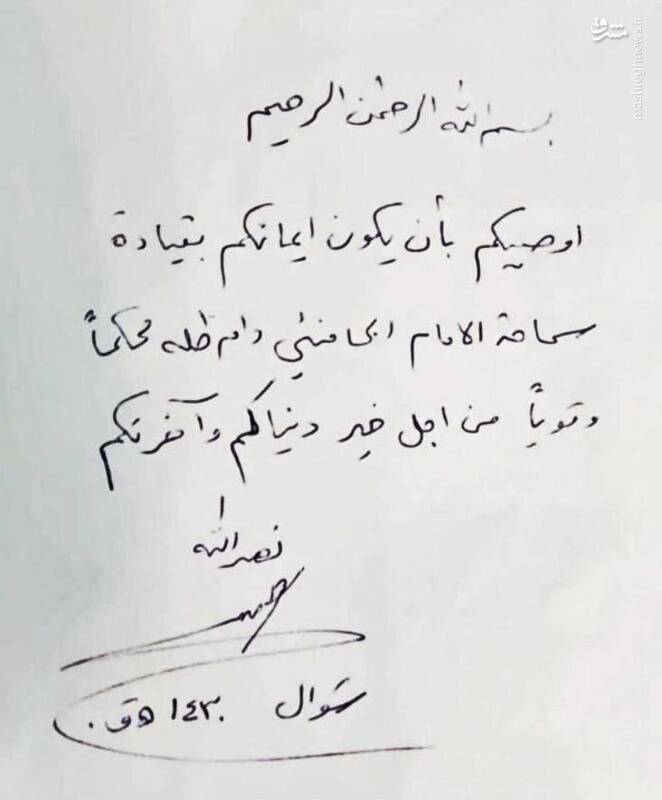 بسم الله الرحمن الرحيم
اوصيكم بأن يكون ايمانكم بقيادة
سماحة الامام الخامنئي دام ظله محكماً
وقوياً من اجل خير دنياكم وآخرتكم
نصر الله
شوال ١٤٣٠ هـ ق.
مشرق
mashreghnews.ir